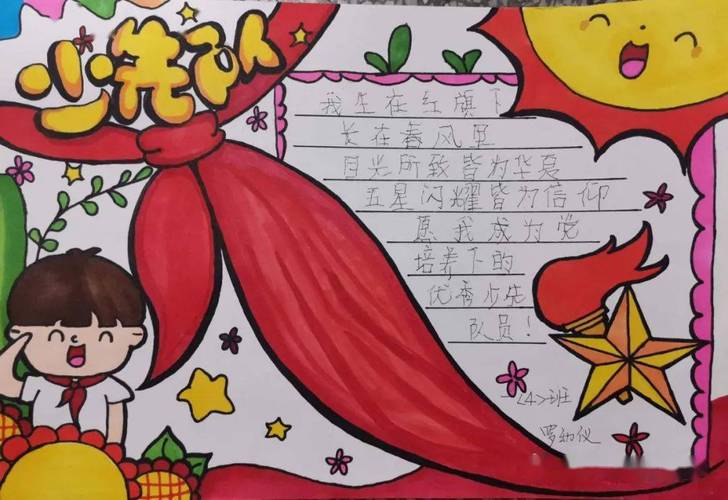 少先队
我生在红旗下
长在春风里
目光所致皆为华夏
五星闪耀皆为信仰
愿我成为党
培养下的
优秀少先
队员！
一<4>班